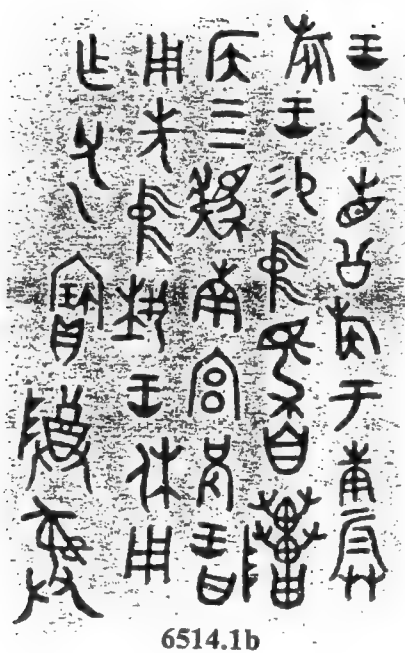 王大省公族于庚𨑊
旅王易中馬自隯
侯四𩣡南宮兄王曰
用先中埶王休用
乍父乙寶𨻰彝
6514.1b